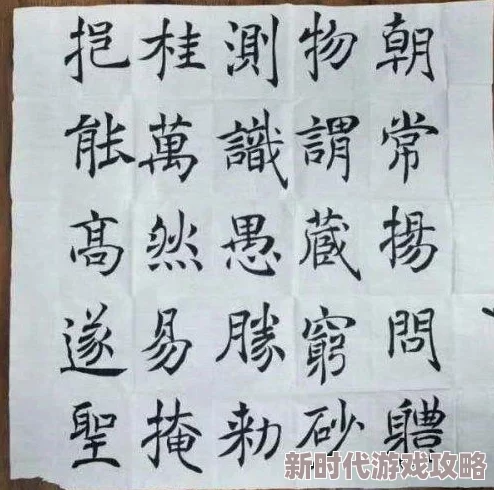 挹桂測物朝
能萬識謂常
高然愚藏揚
遂易勝窮問
聖掩勑砂軆
新时代游戏攻略